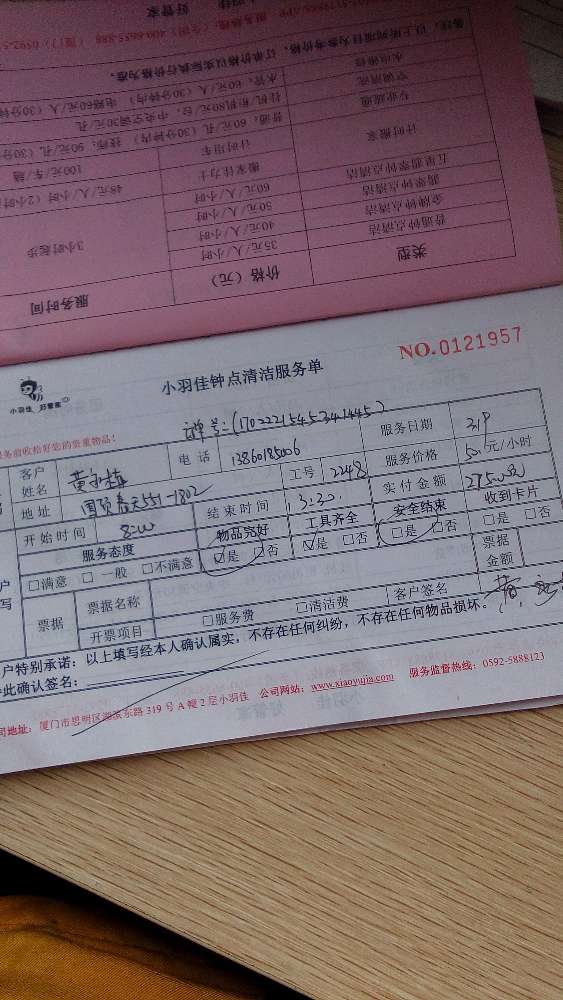 好管家
备注：以上所列项目为参考价格，订单价格以实际执行价格为准。
水电维修 水管，60元/人（30分钟内） 电路60元/人（30分钟
空调清洗 挂机/柜机80元/台，中央空调30元/孔
专业疏通 普通：60元/孔（30分钟内） 疑难：90元/孔（30分
计时搬家 计时用车 100元/车/趟
搬家佳力士 48元/人/小时（2小时
五星翡翠钟点清洁 60元/人/小时
翡翠钟点清洁 50元/人/小时
金牌钟点清洁 40元/人/小时
普通钟点清洁 35元/人/小时 3小时起步
类型 价格（元） 服务时间
小羽佳 好管家
小羽佳钟点清洁服务单
NO.0121957
服务前收拾好您的贵重物品！
订单号：(170222154534144S)
客户姓名 电话 13860185006 服务日期 3.19
地址 工号 2248 服务价格 50元/小时
开始时间 8:00 结束时间 3:30. 实付金额 275元
服务态度 物品完好 工具齐全 安全结束 收到卡片
□满意 □一般 □不满意 ☑是 □否 ☑是 □否 □是 □否 □是 □否
票据 票据名称 票据金额
开票项目 □服务费 □清洁费 客户签名
户特别承诺：以上填写经本人确认属实，不存在任何纠纷，不存在任何物品损坏。
此确认签名：
司地址：厦门市思明区湖滨东路319号A幢2层小羽佳 公司网站：www.xiaoyujia.com 服务监督热线：0592-5888123